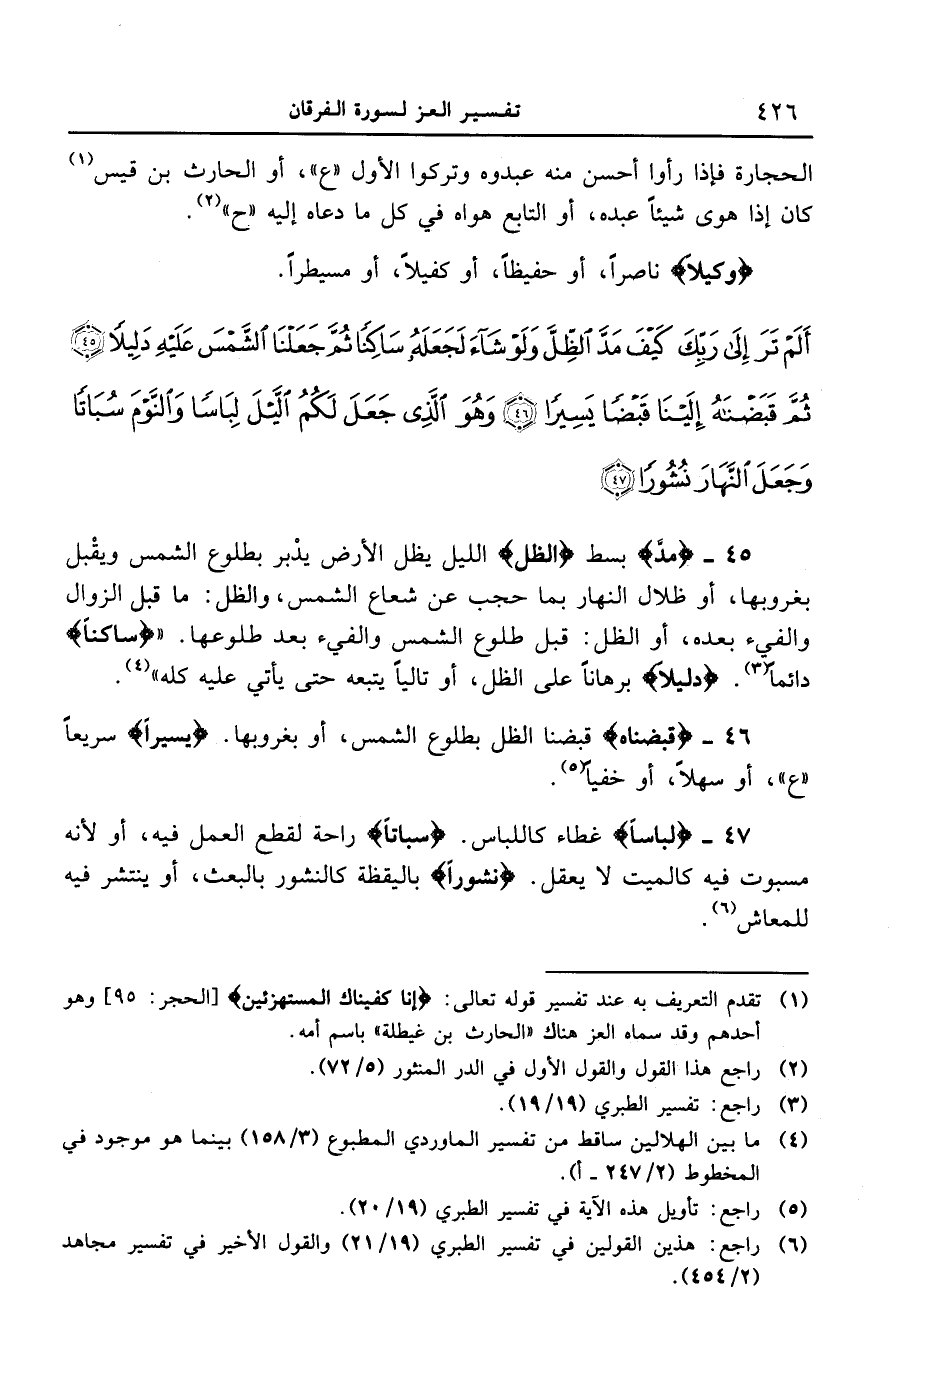 ٤٢٦ تفسير العز لسورة الفرقان
الحجارة فإذا رأوا أحسن منه عبدوه وتركوا الأول «ع»، أو الحارث بن قيس(١)
كان إذا هوى شيئاً عبده، أو التابع هواه في كل ما دعاه إليه «ح»(٢).
﴿وكيلاً﴾ ناصراً، أو حفيظاً، أو كفيلاً، أو مسيطراً.
أَلَمْ تَرَ إِلَىٰ رَبِّكَ كَيْفَ مَدَّ ٱلظِّلَّ وَلَوْ شَآءَ لَجَعَلَهُۥ سَاكِنًا ثُمَّ جَعَلْنَا ٱلشَّمْسَ عَلَيْهِ دَلِيلًا ٤٥
ثُمَّ قَبَضْنَٰهُ إِلَيْنَا قَبْضًا يَسِيرًا ٤٦ وَهُوَ ٱلَّذِى جَعَلَ لَكُمُ ٱلَّيْلَ لِبَاسًا وَٱلنَّوْمَ سُبَاتًا
وَجَعَلَ ٱلنَّهَارَ نُشُورًا ٤٧
٤٥ ـ ﴿مدَّ﴾ بسط ﴿الظل﴾ الليل يظل الأرض يدْبر بطلوع الشمس ويقْبل
بغروبها، أو ظلال النهار بما حجب عن شعاع الشمس، والظل: ما قبل الزوال
والفيء بعده، أو الظل: قبل طلوع الشمس والفيء بعد طلوعها. «﴿ساكناً﴾
دائماً(٣). ﴿دليلاً﴾ برهاناً على الظل، أو تالياً يتبعه حتى يأتي عليه كله»(٤).
٤٦ ـ ﴿قبضناه﴾ قبضنا الظل بطلوع الشمس، أو بغروبها. ﴿يسيراً﴾ سريعاً
«ع»، أو سهلاً، أو خفياً(٥).
٤٧ ـ ﴿لباساً﴾ غطاء كاللباس. ﴿سباتاً﴾ راحة لقطع العمل فيه، أو لأنه
مسبوت فيه كالميت لا يعقل. ﴿نشوراً﴾ باليقظة كالنشور بالبعث، أو ينتشر فيه
للمعاش(٦).
(١) تقدم التعريف به عند تفسير قوله تعالى: ﴿إنا كفيناك المستهزئين﴾ [الحجر: ٩٥] وهو
أحدهم وقد سماه العز هناك «الحارث بن غيطلة» باسم أمه.
(٢) راجع هذا القول والقول الأول في الدر المنثور (٧٢/٥).
(٣) راجع: تفسير الطبري (١٩/١٩).
(٤) ما بين الهلالين ساقط من تفسير الماوردي المطبوع (١٥٨/٣) بينما هو موجود في
المخطوط (٢٤٧/٢ ـ أ).
(٥) راجع: تأويل هذه الآية في تفسير الطبري (٢٠/١٩).
(٦) راجع: هذين القولين في تفسير الطبري (٢١/١٩) والقول الأخير في تفسير مجاهد
(٤٥٤/٢).